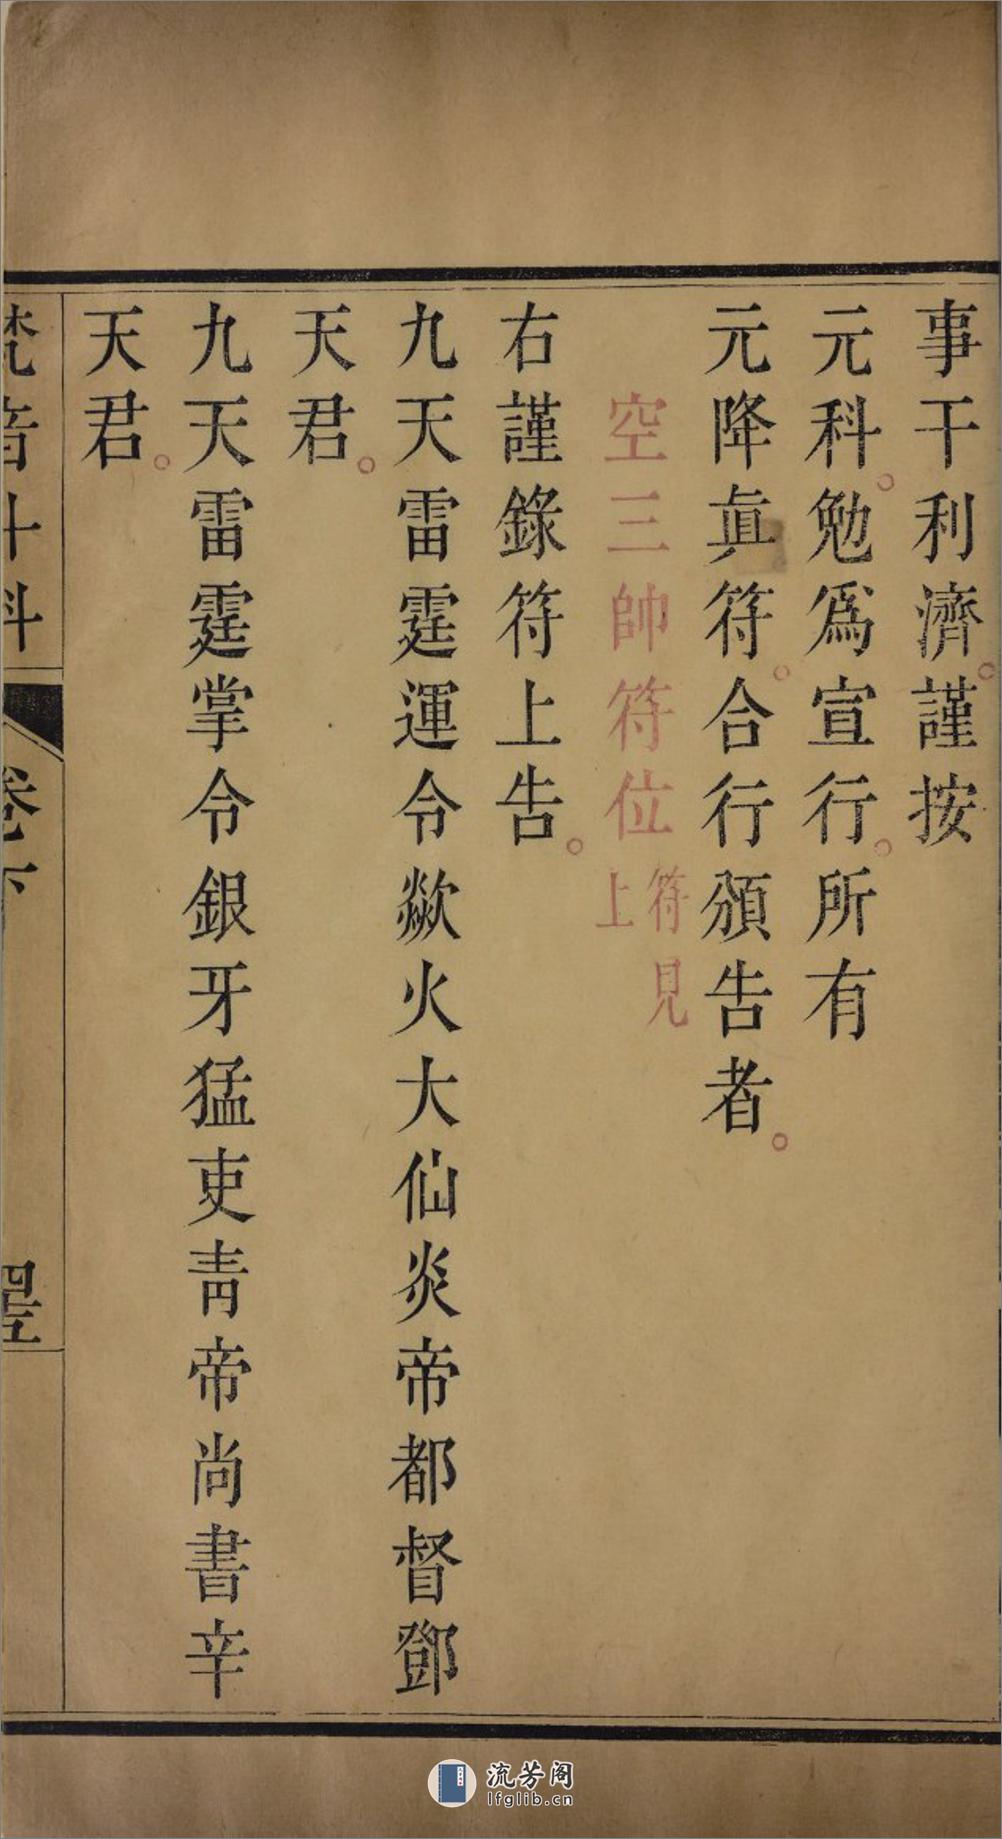 事干利濟。謹按
元科。勉爲宣行。所有
元降眞符。合行頒告者。
空三帥符位符見上
右謹錄符上告。
九天雷霆運令歘火大仙炎帝都督鄧
天君。
九天雷霆掌令銀牙猛吏靑帝尚書辛
天君。
梵音斗科
卷下
流芳阁
lfglib.cn